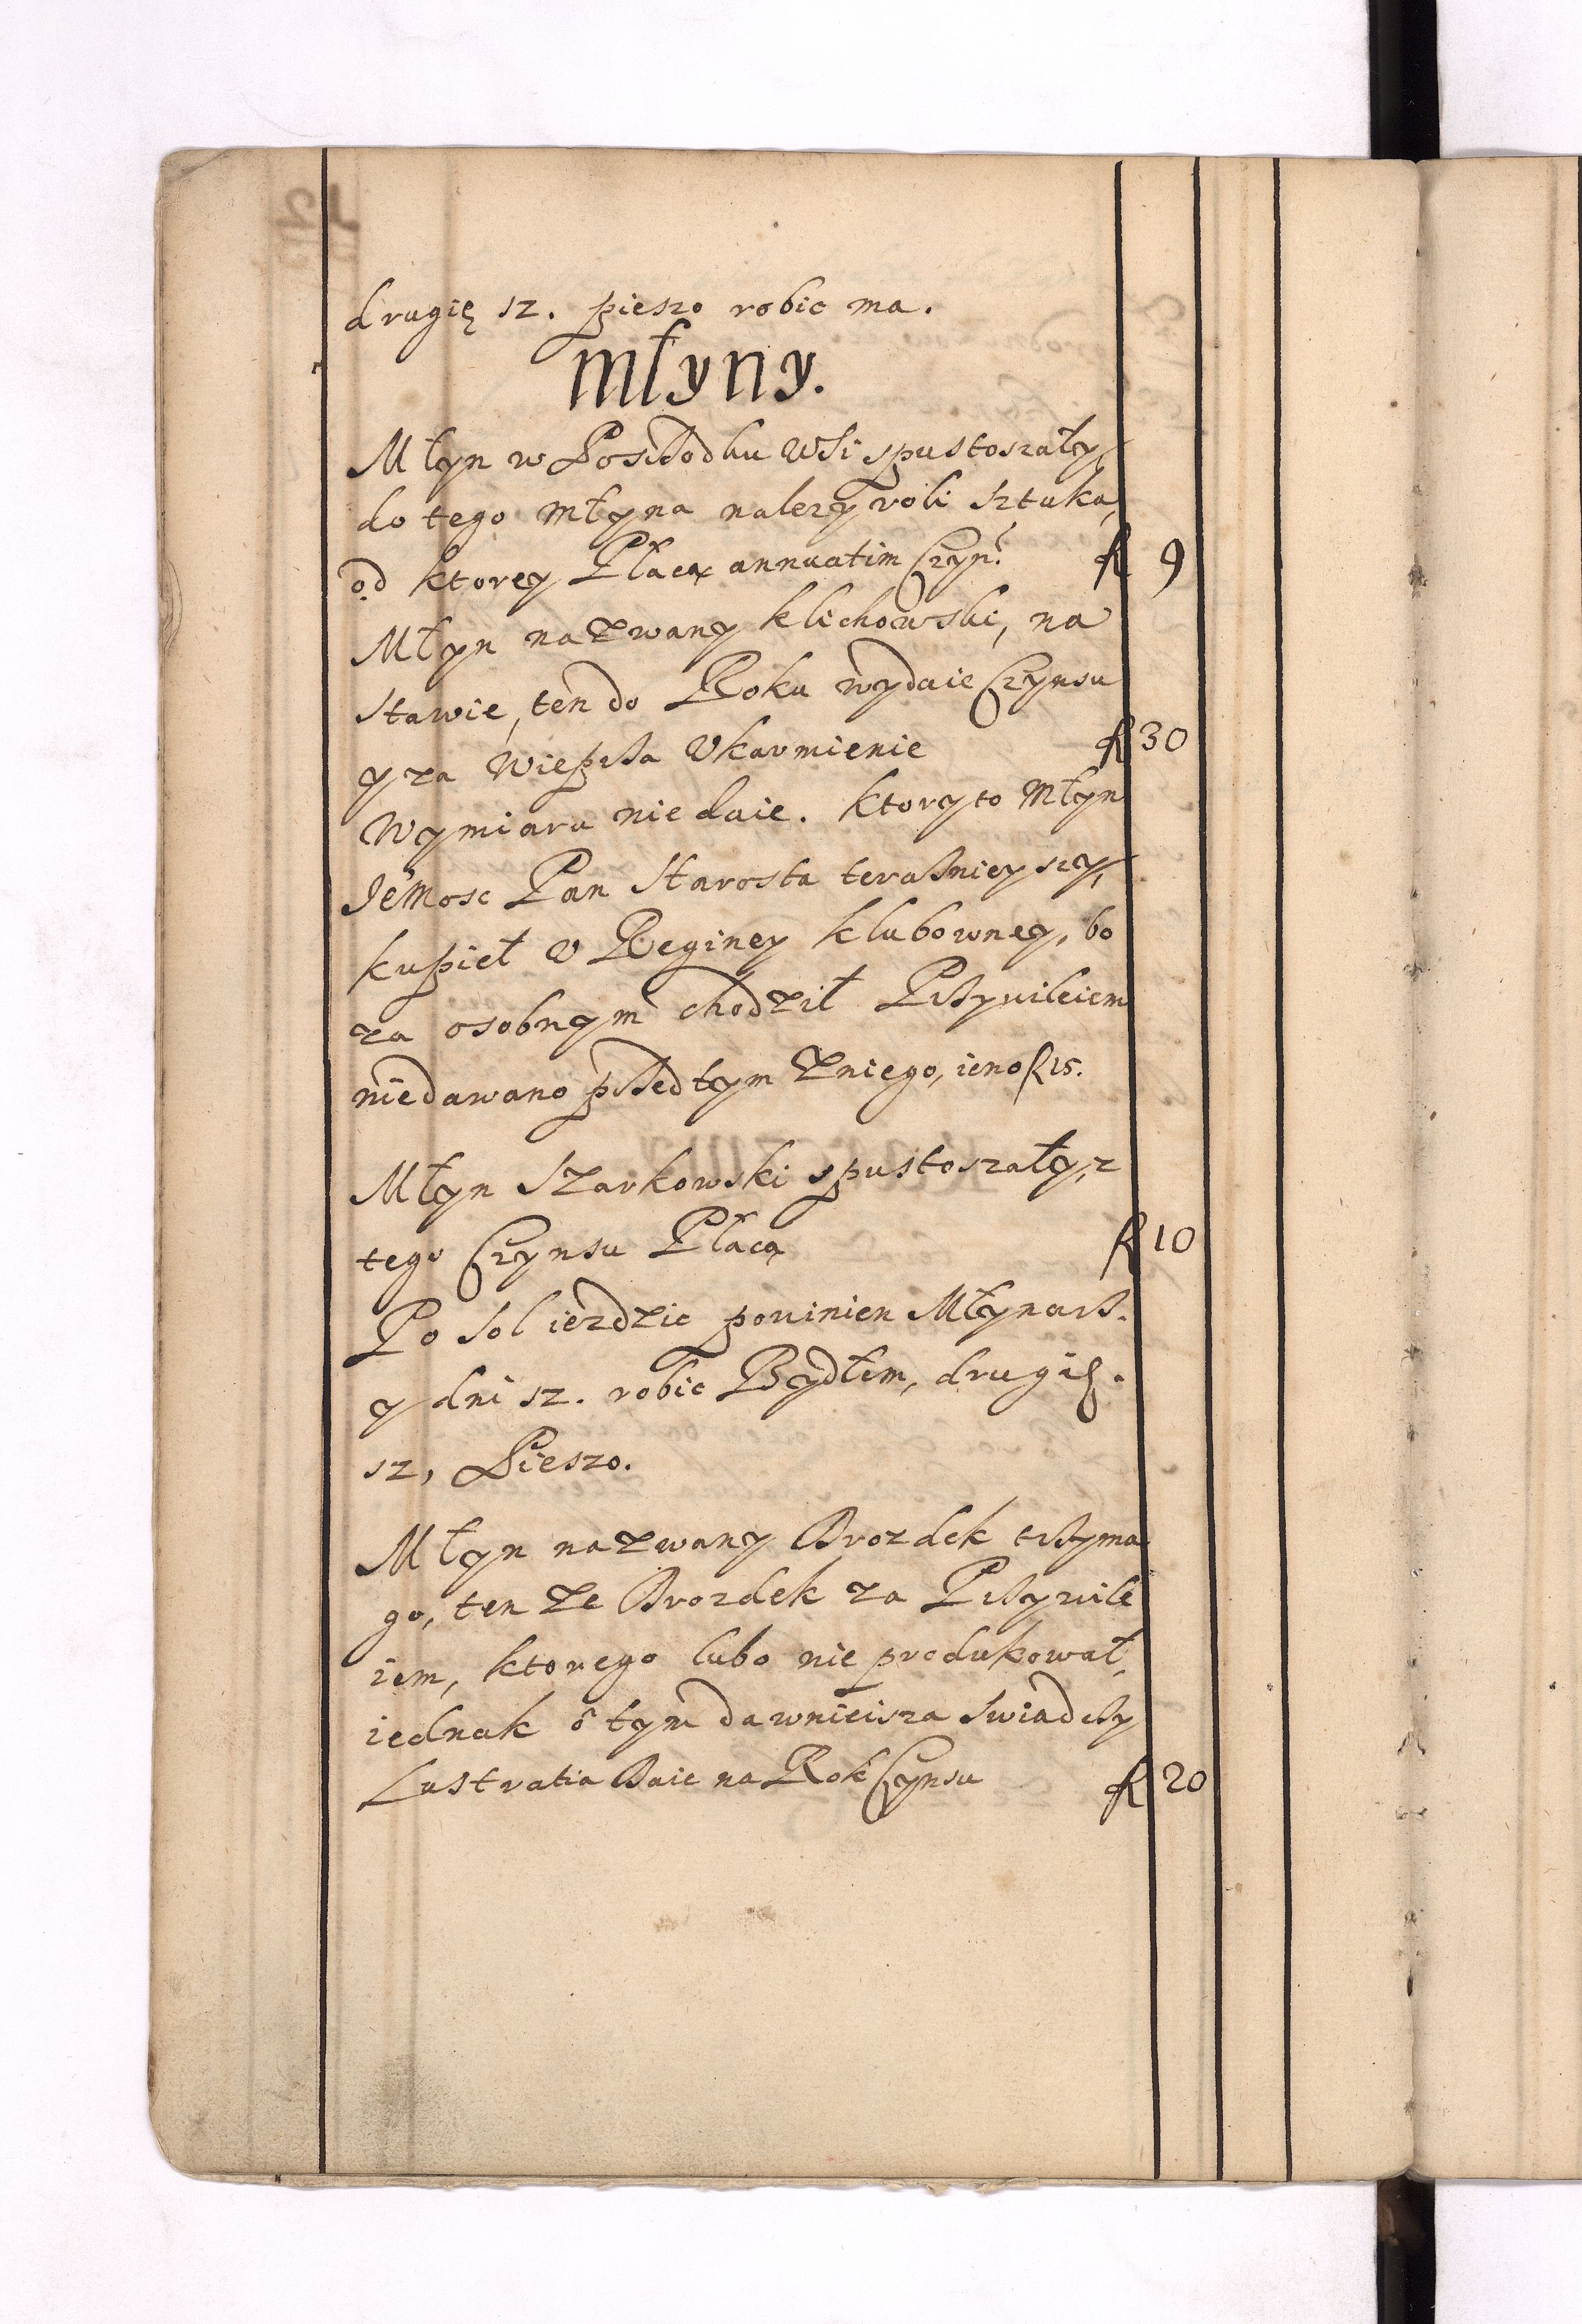 drugię sz. pieszo robic ma.
Młyny.
Młyn w Poszrodku wsi spustoszały,
do tego młyna nalezy roli sztuka,
od ktorey Płacą annuatim Czyn: fl 9
Młyn nazwany klichowski, na
stawie, ten do Roku wydaie Czynsu
y za Wieprza Vkarmienie fl 30
Wymiaru nie daie. ktoryto Młyn
Jemosc Pan Starosta teraznieyszy,
kupieł v Reginey klubowney, bo
za osobnym chodził Przywileiem
niedawano przedtym zniego, ieno fl 15.
Młyn Szarkowski spustoszały, z
tego Czynsu Płacą fl 10
Po sol iezdzic powinien Młynarz.
y dni sz. robic Bydłem, drugię.
sz, Pieszo.
Młyn nazwany Brozdek trzyma
go, ten ze Brozdek za Przywile
iem, ktorego lubo nie produkował,
iednak o tym dawnieisza swiadczy
Lustratia Daie na Rok Czynsu fl 20